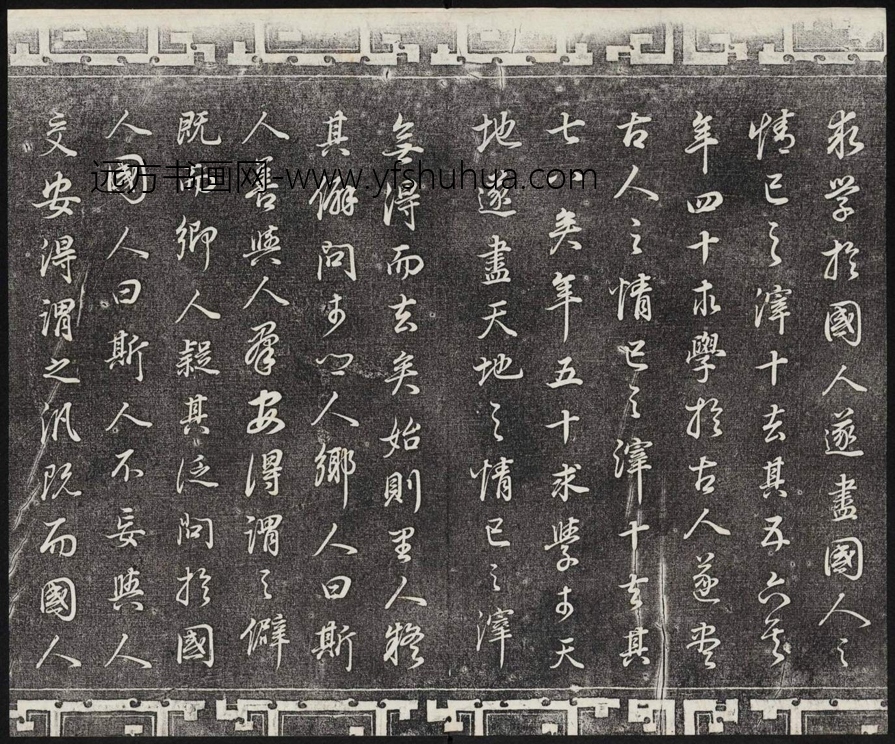 求學於國人遂盡國人之
情己之滓十去其五六矣
年四十求學於古人遂盡
古人之情己之滓十去其
七八矣年五十求學于天
地遂盡天地之情己之滓
無得而去矣始則里人疑
其僻問于鄉人鄉人曰斯
人善與人群安得謂之僻
既而鄉人疑其泛問於國
人國人曰斯人不妄與人
交安得謂之汎既而國人
远方书画网-www.yfshuhua.com